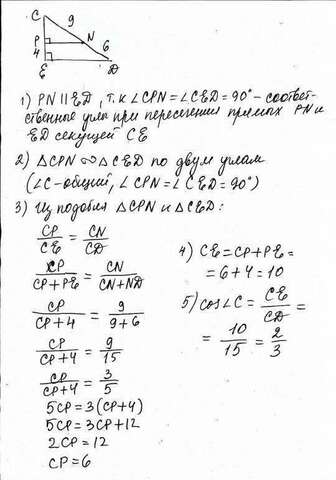 C
9
P
N
4
6
E
D
1) PN || ED, т.к ∠CPN = ∠CED = 90° - соответ-
ственные углы при пересечении прямых PN и
ED секущей CE
2) △CPN ∾ △CED по двум углам
(∠C - общий, ∠CPN = ∠CED = 90°)
3) Из подобия △CPN и △CED:
CP/CE = CN/CD
CP/CP+PE = CN/CN+ND
CP/CP+4 = 9/9+6
CP/CP+4 = 9/15
CP/CP+4 = 3/5
5CP = 3(CP+4)
5CP = 3CP+12
2CP = 12
CP = 6
4) CE = CP + PE =
= 6 + 4 = 10
5) cos∠C = CE/CD =
= 10/15 = 2/3